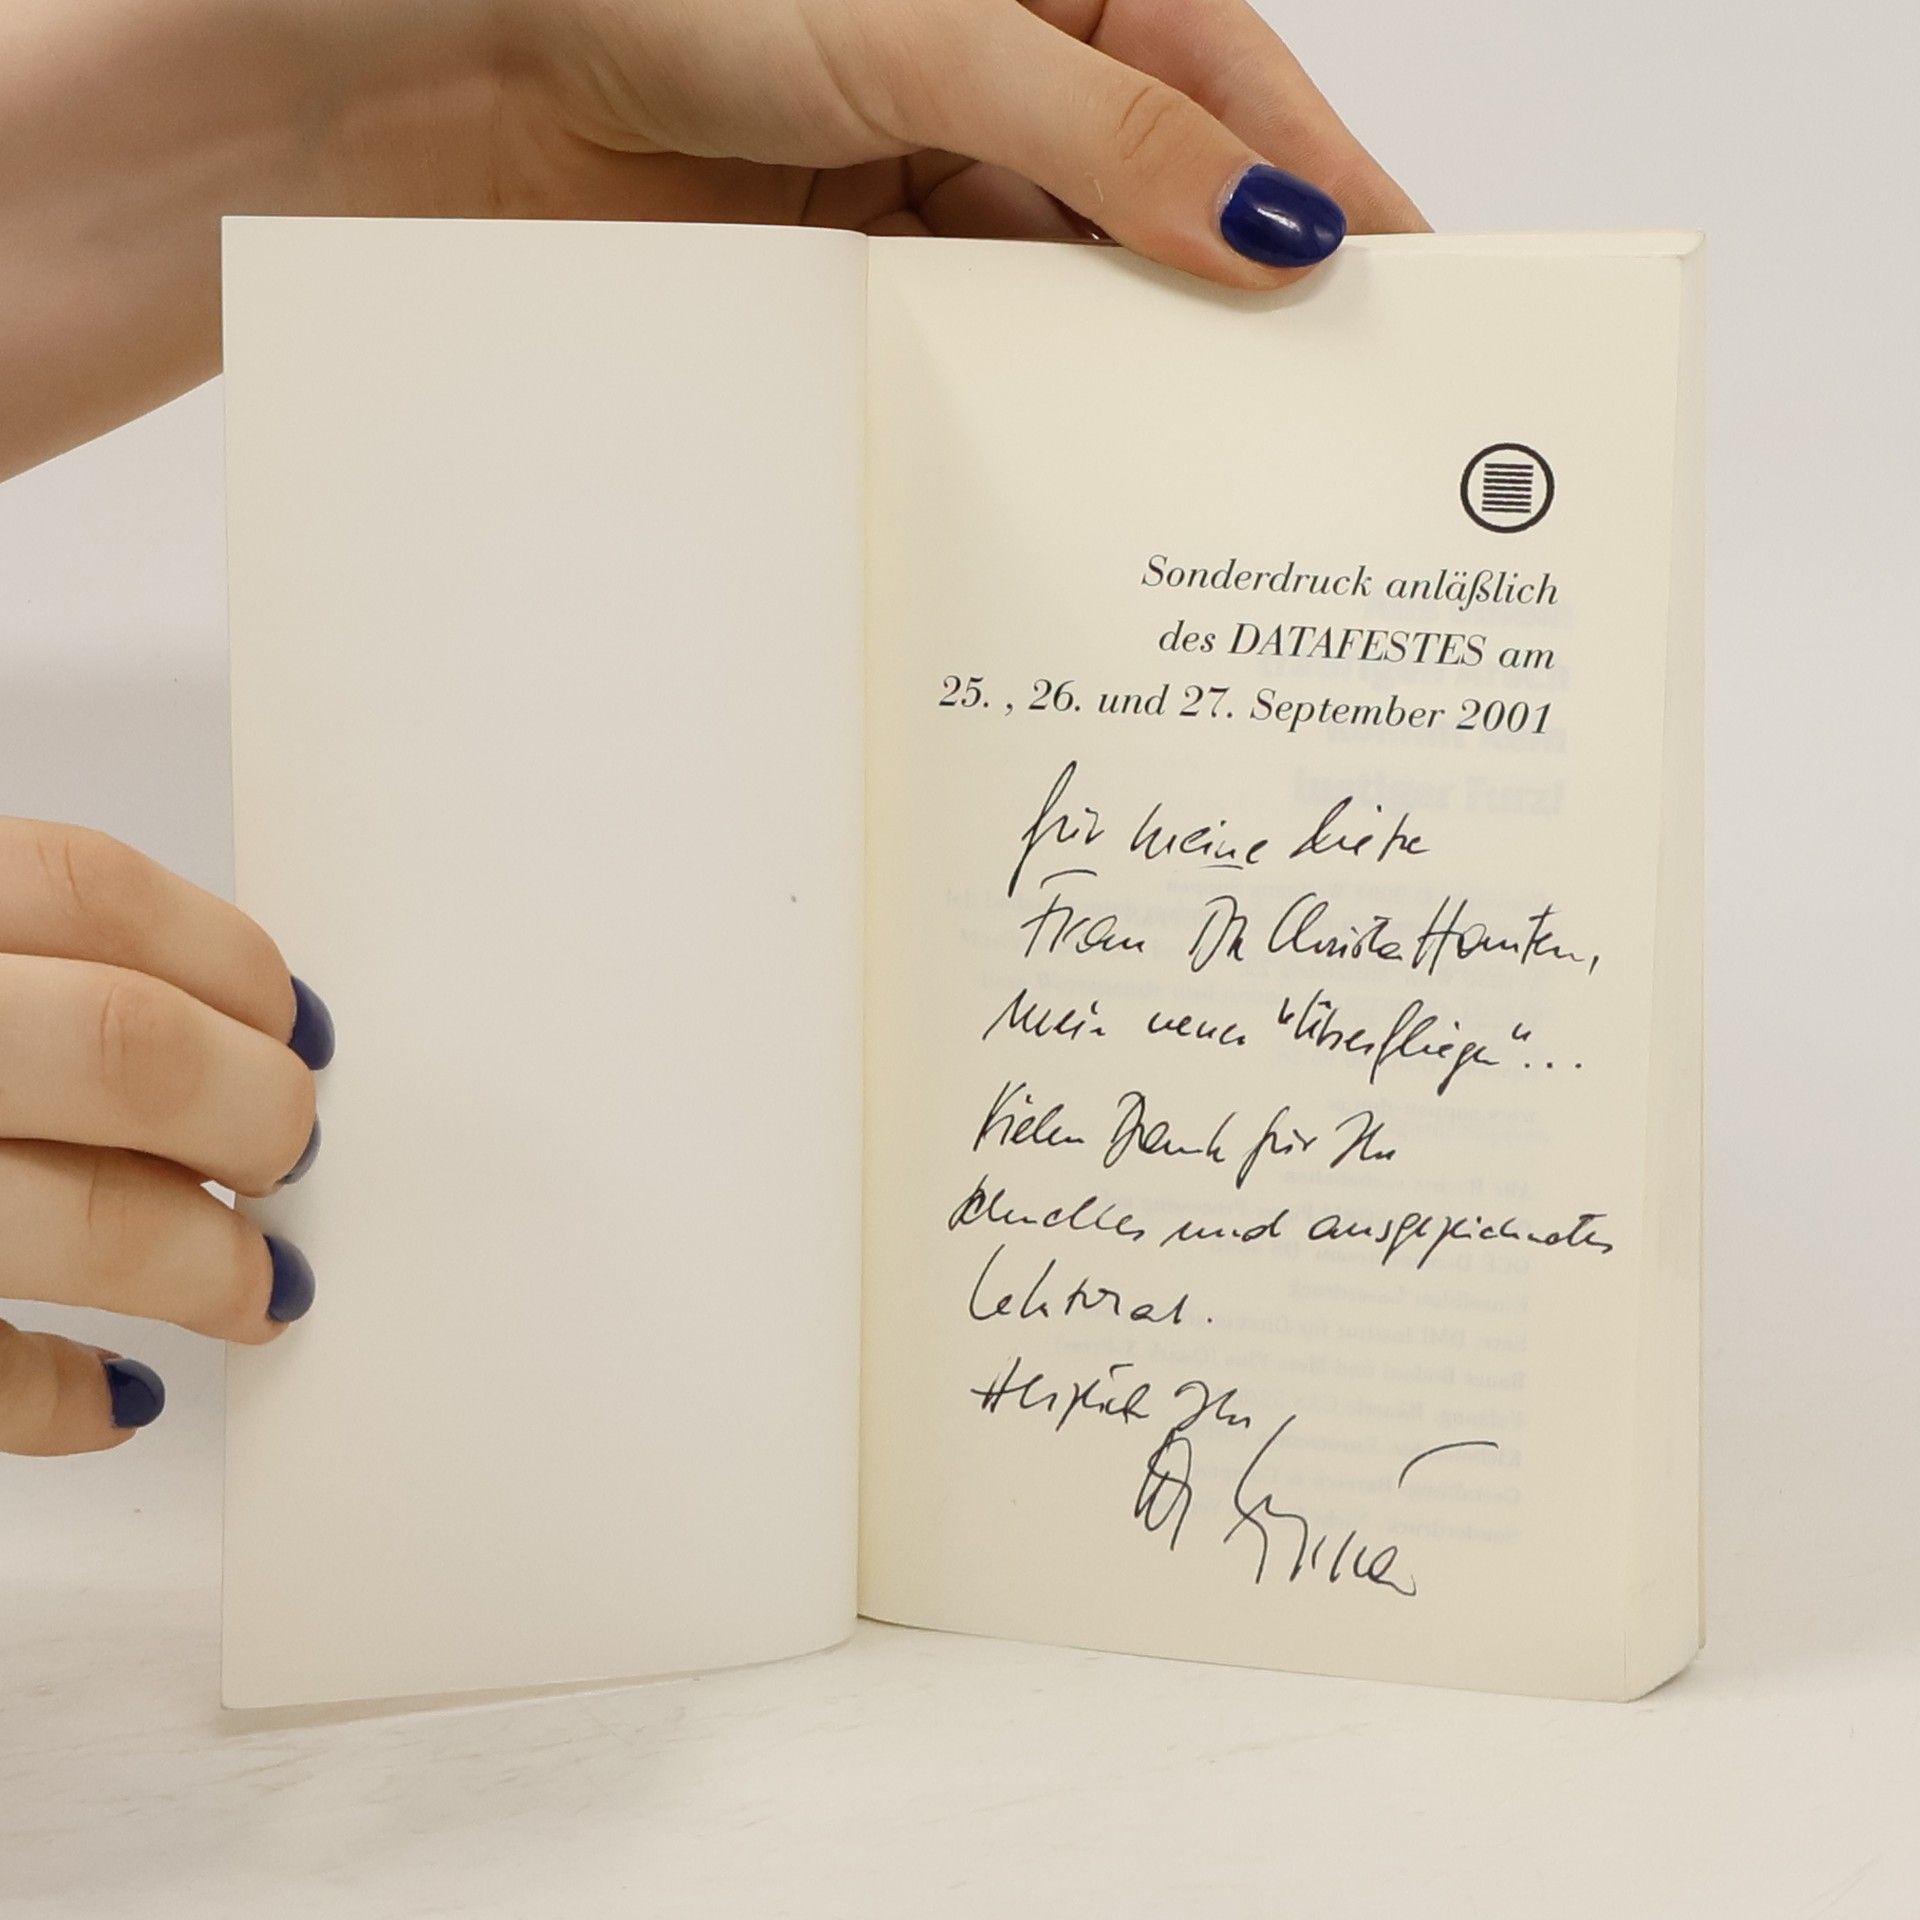 Sonderdruck anläßlich
des DATAFESTES am
25. , 26. und 27. September 2001
für meine liebe
Frau Dr. Christa Hauten,
mein neuer "Überflieger"...
Vielen Dank für Ihr
schnelles und ausgezeichnetes
Lektorat.
Herzlich Ihr